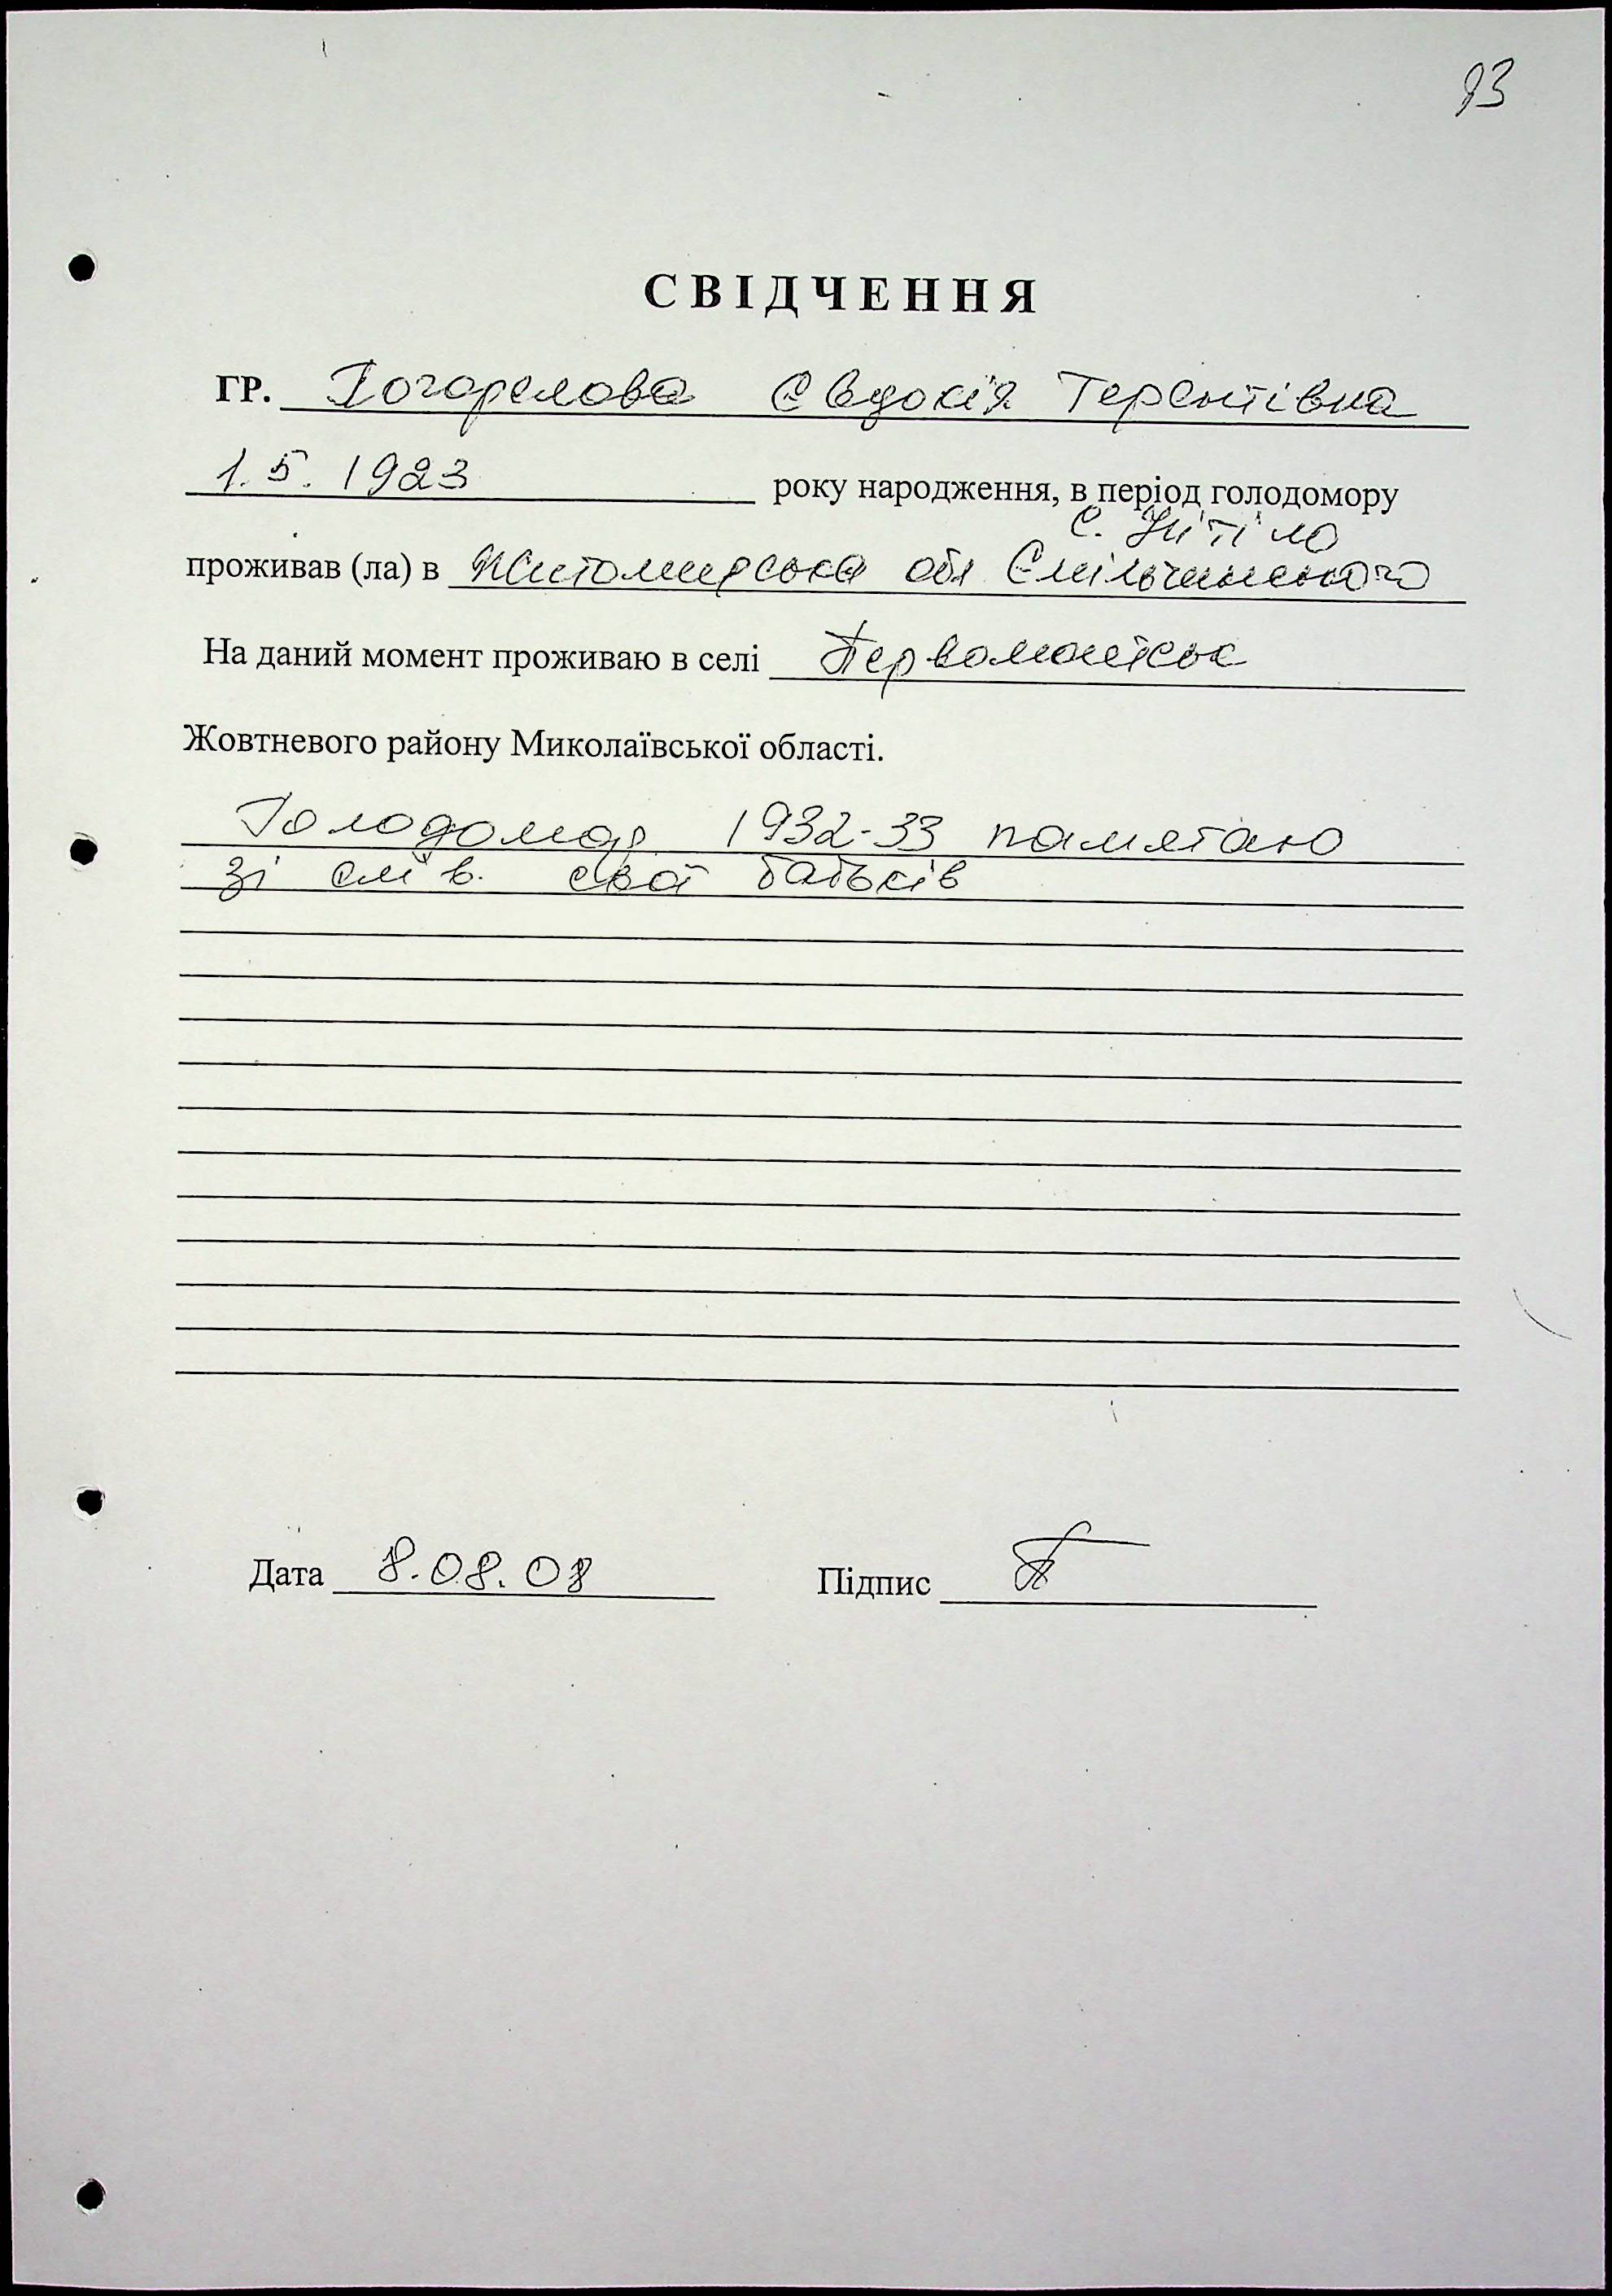 93
СВІДЧЕННЯ
ГР. Погорелова Євдокія Терентівна
1.5.1923 року народження, в період голодомору
с.
проживав (ла) в Житомирська обл Ємільчинського
На даний момент проживаю в селі Первомайськ
Жовтневого району Миколаївської області.
Голодомор 1932-33 памятаю
зі слів. свої батьків
Дата 8.08.08 Підпис